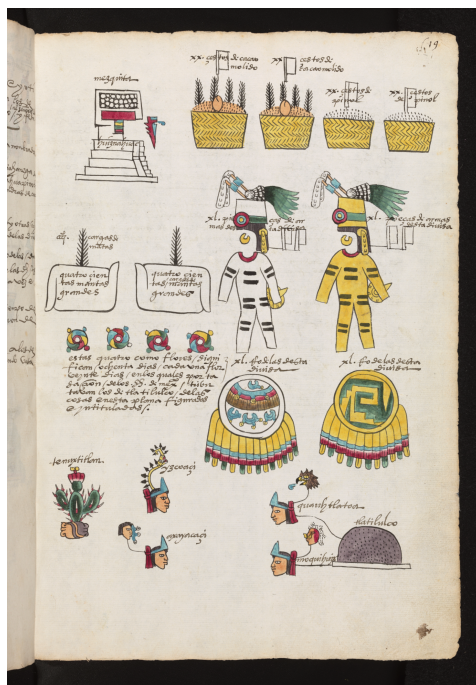 19
xx. cestos de cacao
molido
xx. cestos de
cacao molido
xx. cestos de
pinol
xx. cestos
de pinol
mezquita
xl. piecas de ar
mas desta divisa
xl. piecas de armas
desta divisa
cargas de
mantas
quatro cien
tas mantas
grandes
quatro cien
tas mantas
grandes
estas quatro como flores / signi
fican / ochenta dias / cada una flor
veynte dias / en los quales
de mexico / tribu
tavan los de tlatilulco / de las
cosas en esta plana figuradas
e yntituladas /.
xl. rodelas desta
divisa
xl. rodelas desta
divisa
tenuxtitlan.
yzcoaçi
axayacaçi
quauhtlatoa
tlatilulco
moquihuix